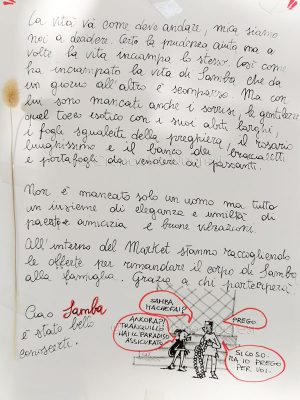 La vita va come deve andare, mica siamo
noi a decidere. Certo la prudenza aiuta ma a
volte la vita inciampa lo stesso. Così come
ha inciampato la vita di Samba che da
un giorno all'altro è scomparso. Ma con
lui sono mancati anche i sorrisi, la gentilezza
quel tocco esotico con i suoi abiti larghi,
i fogli squalciti della preghiera, il rosario
lunghissimo e il banco dei braccialetti
e portafogli da vendere ai passanti.
Non è mancato solo un uomo ma tutto
un insieme di eleganza e umiltà di
amicizia e buone vibrazioni.
All'interno del Market stanno raccogliendo
le offerte per rimandare il corpo di Samba
alla famiglia. Grazie a chi parteciperà
Ciao Samba
è stato bello
conoscerti.
SAMBA
MACHEFAI?
PREGO
ANCORA?!
TRANQUILLO
HAI IL PARADISO
ASSICURATO
SI LO SO.
MA IO PREGO
PER VOI.